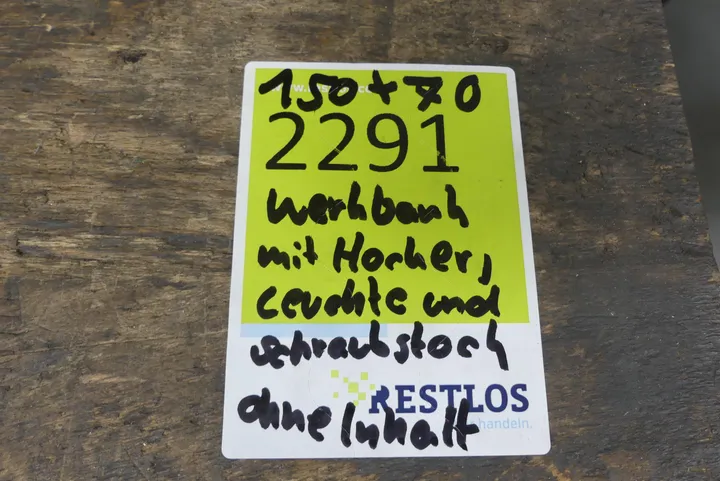 150 x 70
2291
Werkbank
mit Hocker,
Leuchte und
schraubstock
RESTLOS
handeln.
ohne Inhalt